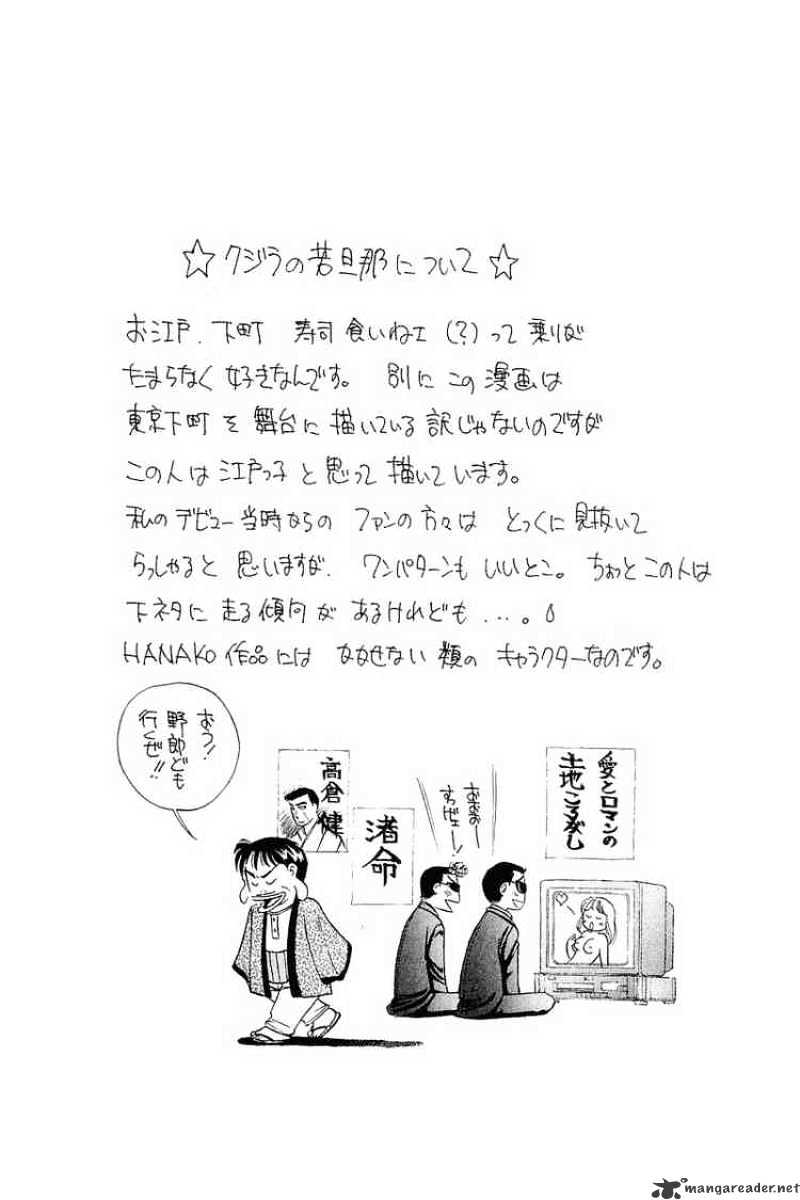 ☆クジラの若旦那について☆
お江戸、下町　寿司食いねェ（？）って乗りが
たまらなく好きなんです。別にこの漫画は
東京下町を舞台に描いている訳じゃないのですが
この人は江戸っ子と思って描いています。
私のデビュー当時からのファンの方々はとっくに見抜いて
らっしゃると思いますが、ワンパターンもいいとこ。ちょっとこの人は
下ネタに走る傾向があるけれども…。
HANAKO作品には かかせない類のキャラクターなのです。
おう！
野郎ども
行くぜ!!
高倉健
渚命
おおおー
すっげェー！
愛とロマンの
土地ころがし
mangareader.net